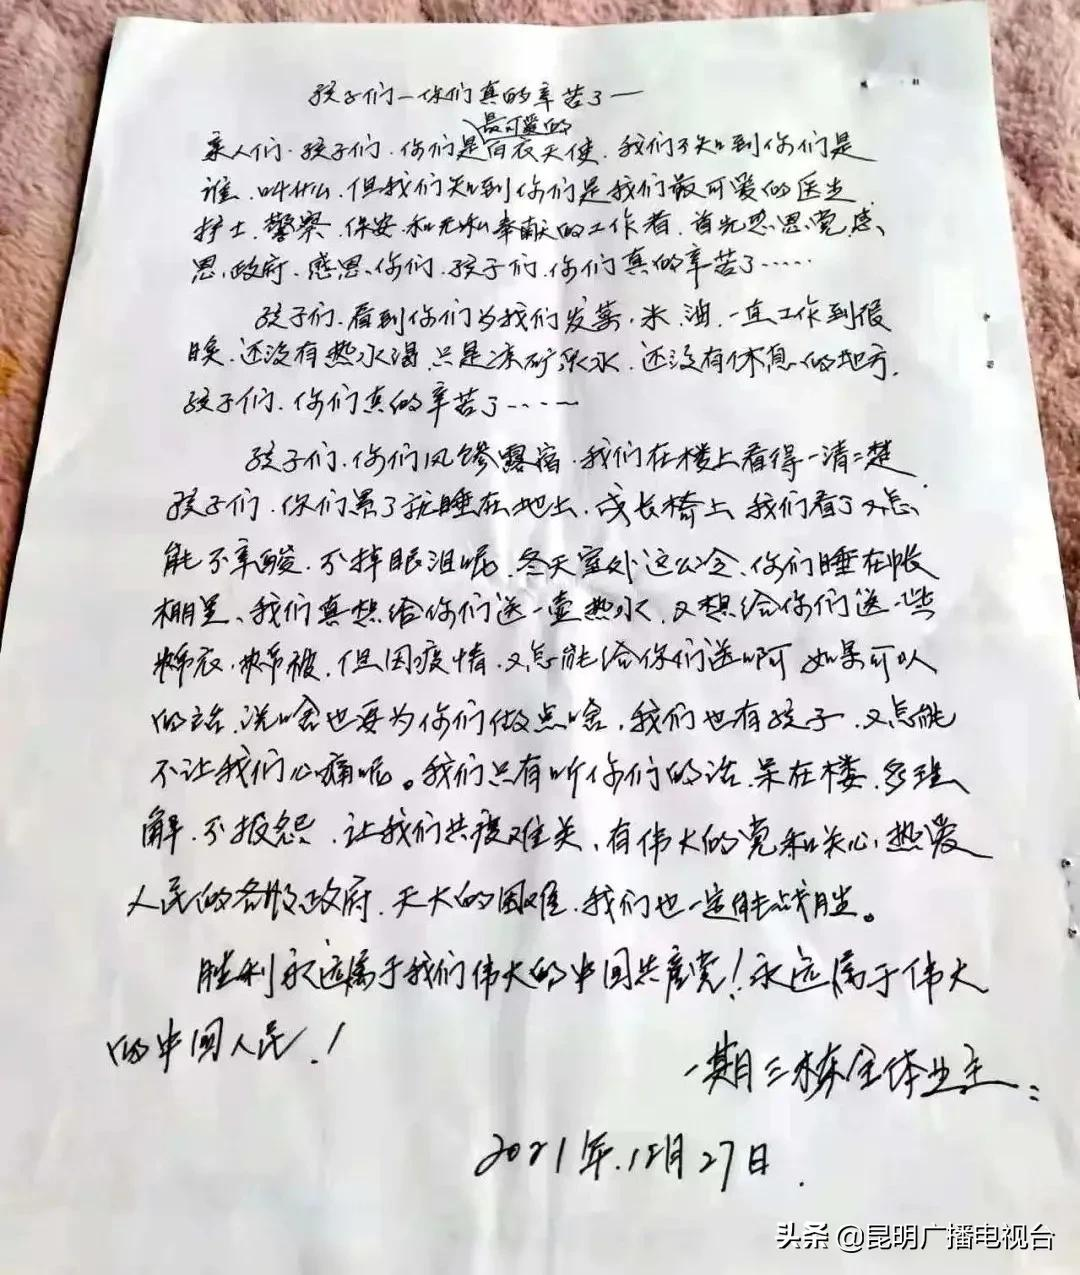 孩子们—你们真的辛苦了—
最可爱的
亲人们.孩子们.你们是白衣天使.我们不知到你们是
谁.叫什么.但我们知到你们是我们最可爱的医生.
护士.警察.保安.和无私奉献的工作者.首先感恩党.感
恩政府.感恩你们.孩子们.你们真的辛苦了……
孩子们.看到你们为我们发菜.米.油.一直工作到很
晚.还没有热水渴.只是凉矿泉水.还没有休息的地方.
孩子们.你们真的辛苦了……
孩子们.你们风餐露宿.我们在楼上看得一清二楚
孩子们.你们累了就睡在地上.或长椅上.我们看了又怎
能不辛酸.不掉眼泪呢.冬天室外这么冷.你们睡在帐
棚里.我们真想给你们送一壶热水.又想给你们送一些
棉衣.棉被.但因疫情.又怎能给你们送啊.如果可以
的话.说啥也要为你们做点啥.我们也有孩子.又怎能
不让我们心痛呢。我们只有听你们的话.呆在楼.多理
解.不报怨.让我们共度难关.有伟大的党和关心.热爱
人民的各级政府.天大的困难.我们也一定能战胜。
胜利永远属于我们伟大的中国共产党!永远属于伟大
的中国人民.!
一期三栋全体业主:
2021年.12月27日.
头条 @昆明广播电视台